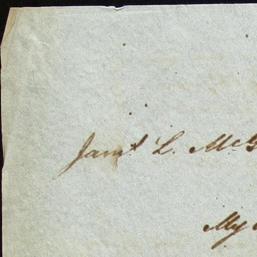 Jamˢ L. McG
My